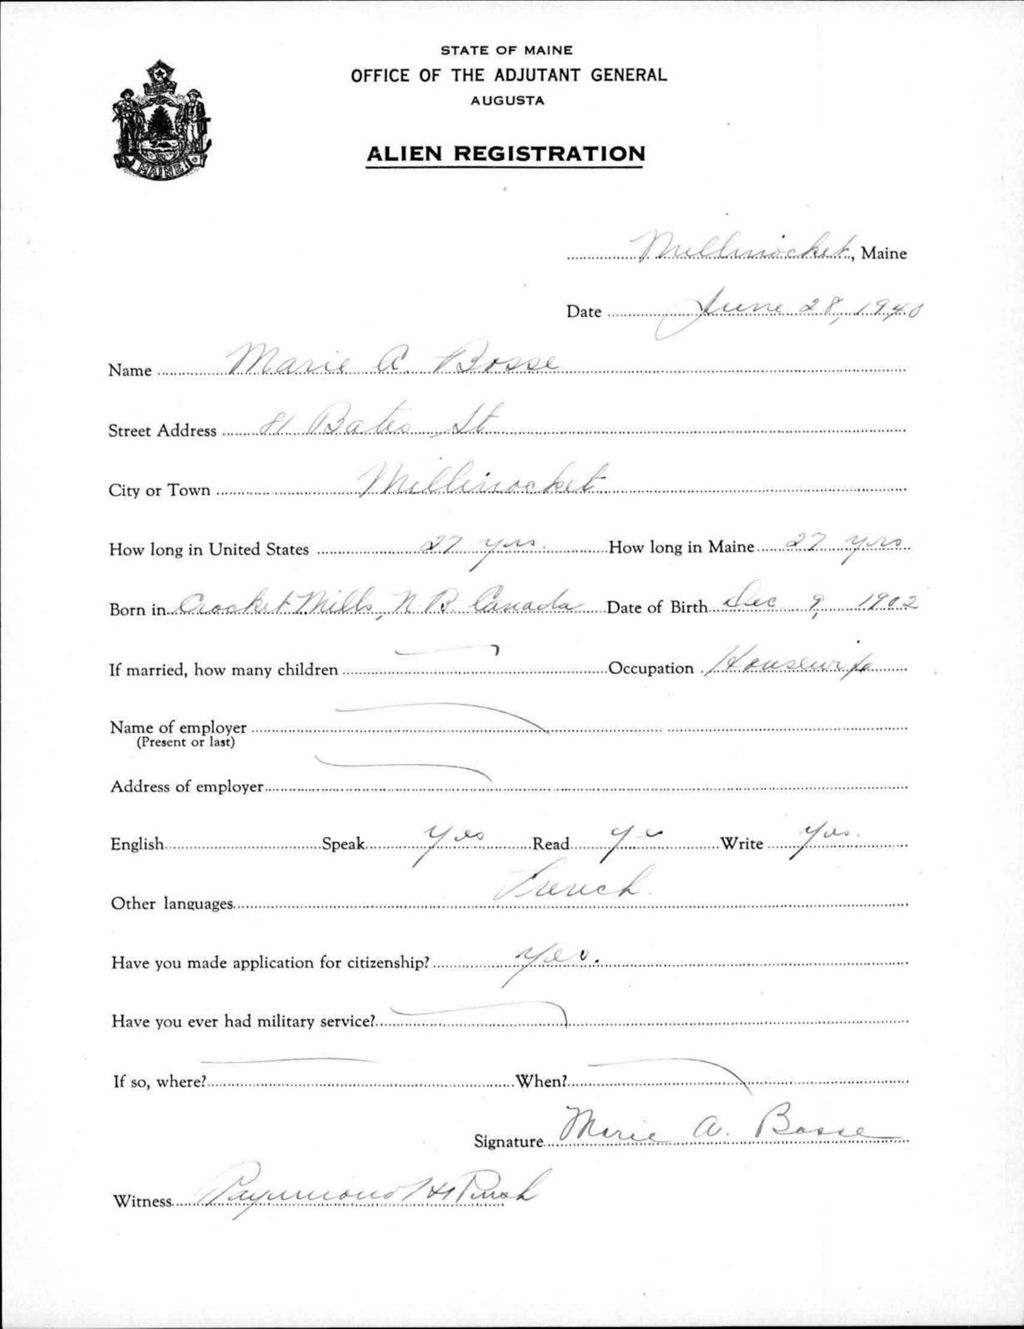 STATE OF MAINE
OFFICE OF THE ADJUTANT GENERAL
AUGUSTA
ALIEN REGISTRATION
MAINE
Millinocket, Maine
Date June 28, 1940
Name Marie A. Bosse
Street Address 81 Bates St
City or Town Millinocket
How long in United States 27 yrs. How long in Maine 27 yrs
Born in Crocket Mills, N B. Canada Date of Birth Dec 9, 1902
If married, how many children Occupation Housewife
Name of employer
(Present or last)
Address of employer
English Speak Yes Read Yes Write Yes.
Other languages French.
Have you made application for citizenship? Yes.
Have you ever had military service?
If so, where? When?
Signature Marie A. Bosse
Witness Raymond H